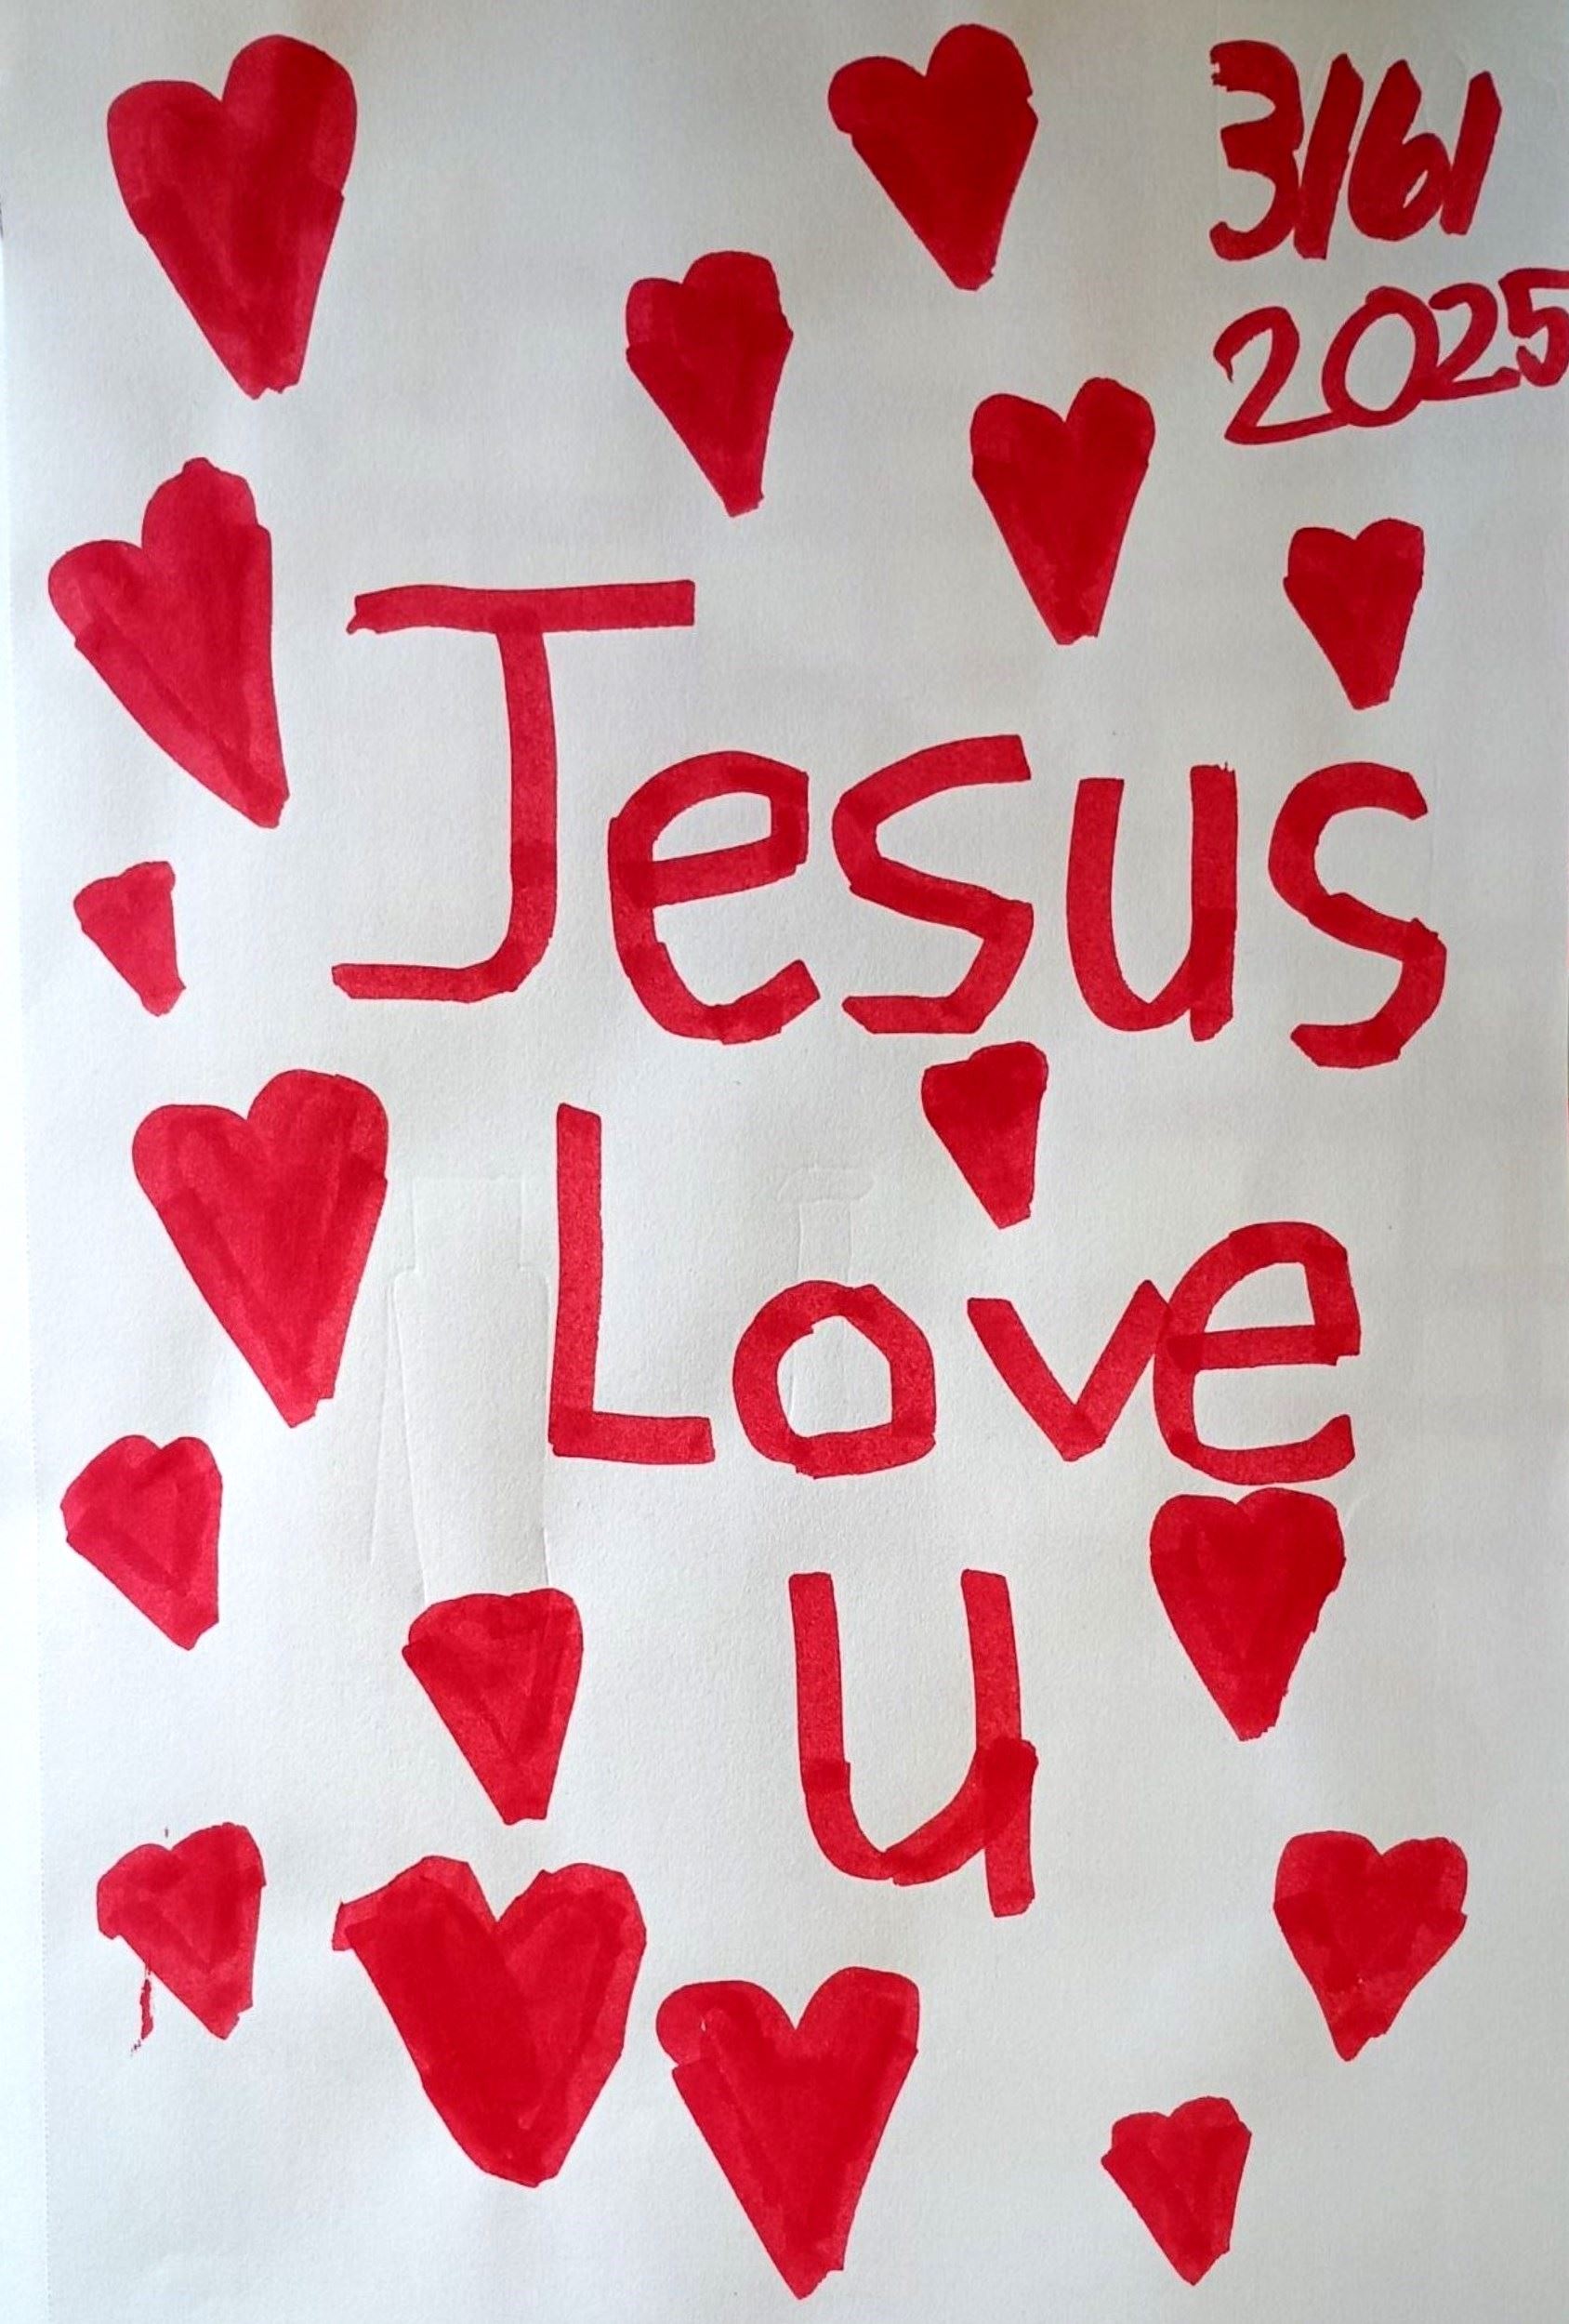 3/6/
2025
Jesus
Love
u